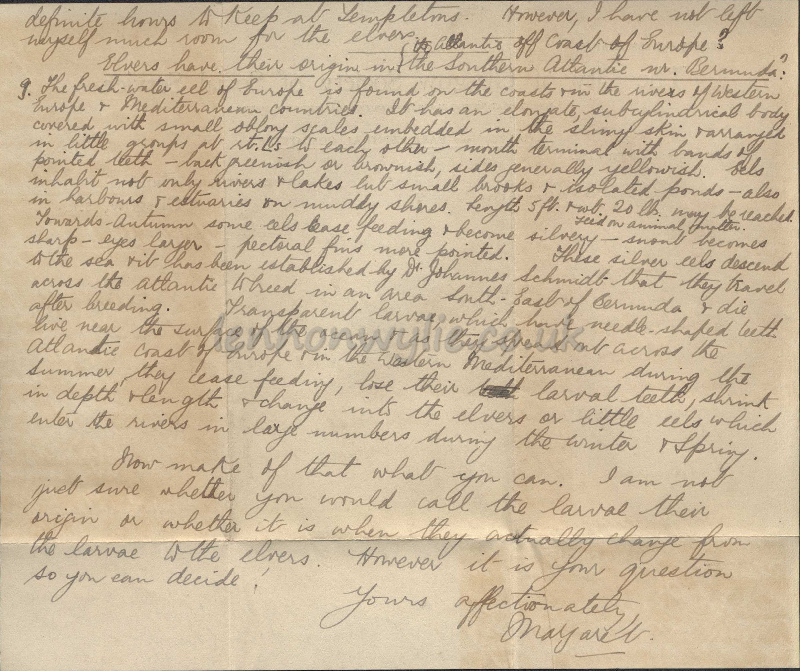 definite hours to keep at Templetons. However, I have not left
myself much room for the elvers.
Elvers have their origin in { the Atlantic off Coast of Europe?
{ the Southern Atlantic nr. Bermuda?
9. The fresh-water eel of Europe is found on the coasts & in the rivers of Western
Europe & Mediterranean countries. It has an elongate, subcylindrical body
covered with small oblong scales embedded in the slimy skin & arranged
in little groups at rt. ∠s to each other - mouth terminal with bands of
pointed teeth - back greenish or brownish, sides generally yellowish. Eels
inhabit not only rivers & lakes but small brooks & isolated ponds - also
in harbours & estuaries on muddy shores. Length 5 ft. & wt. 20 lb. may be reached.
Feed on animal matter.
Towards Autumn some eels cease feeding & become silvery - snout becomes
sharp - eyes larger - pectoral fins more pointed. These silver eels descend
to the sea & it has been established by Dr. Johannes Schmidt that they travel
across the Atlantic to breed in an area South-East of Bermuda & die
after breeding. Transparent larvae, which have needle-shaped teeth
live near the surface of the ocean as they spread out across the
Atlantic coast of Europe & in the Western Mediterranean during the
summer, they cease feeding, lose their larval teeth, shrink
in depth & length & change into the elvers or little eels which
enter the rivers in large numbers during the winter & Spring.
Now make of that what you can. I am not
just sure whether you would call the larvae their
origin or whether it is when they actually change from
the larvae to the elvers. However it is your question
so you can decide!
Yours affectionately
Margaret.
lennonwylie.co.uk